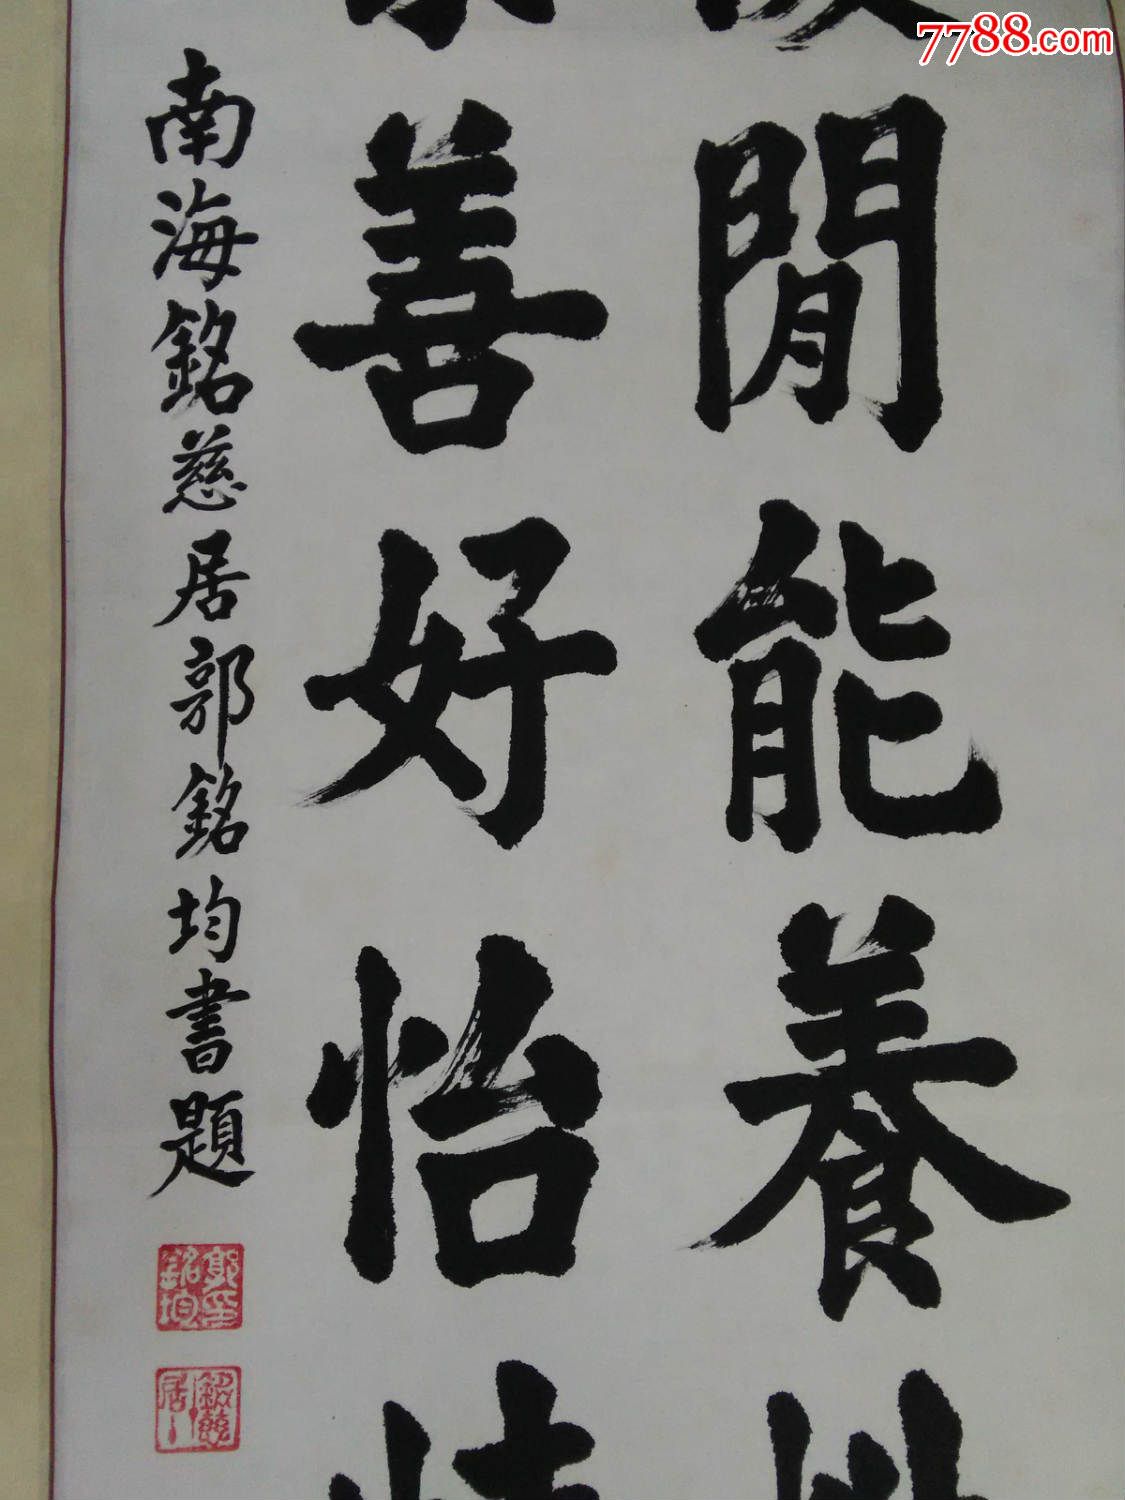 7788.com
閒能養
善好怡
南海銘慈居郭銘均書題
郭銘均印
銘慈居